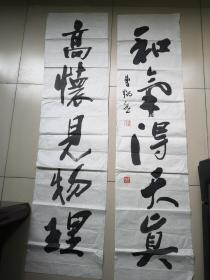 和氣得天真
高懷見物理